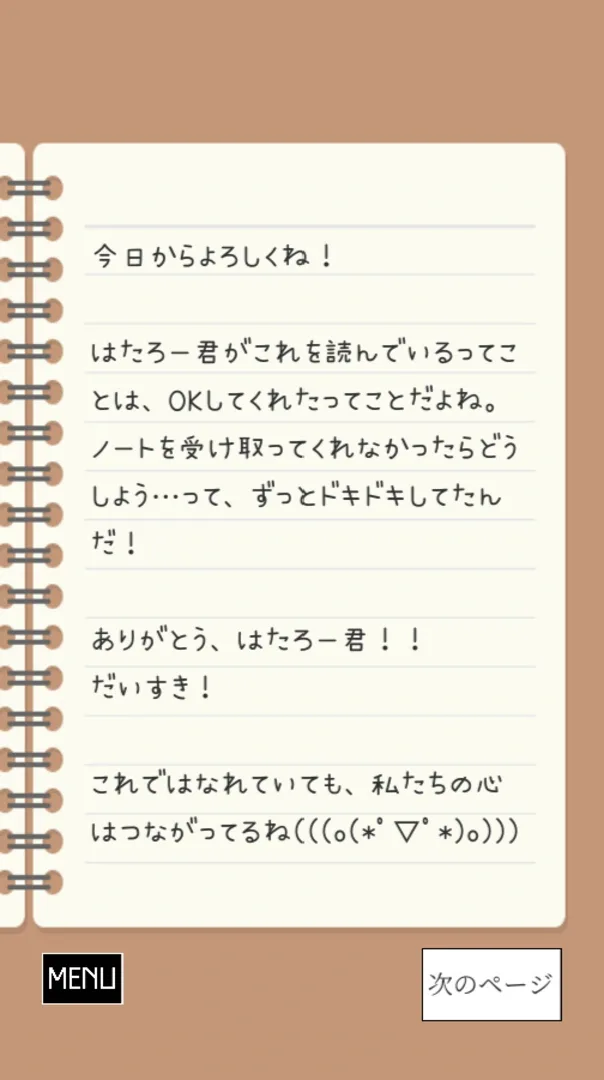 今日からよろしくね！
はたろー君がこれを読んでいるってこ
とは、OKしてくれたってことだよね。
ノートを受け取ってくれなかったらどう
しよう…って、ずっとドキドキしてたん
だ！
ありがとう、はたろー君！！
だいすき！
これではなれていても、私たちの心
はつながってるね(((o(*ﾟ▽ﾟ*)o)))
MENU
次のページ